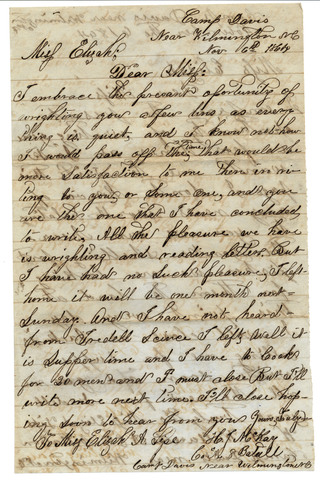 Camp Davis
Near Wilmington NC
Nov 6th 1864
Miss Elizah
Dear Miss:
I embrace the presant oportunity of
wrighting you a few lins as every
thing is quiet, and I know not how
I would pass off the time that would be
more satisfaction to me then in wri
ting to you, or some one, and you
are the one that I have concluded
to write, All the pleasure we have
is wrighting and reading letters. But
I have had no such pleasure, I left
home it will be one month next
Sunday. And I have not heard
from Iredell Scince I left, Well it
is supper time and I have to Cook
for 20 men and I must close But I'll
write more next time. I'll close hop
ing soon to hear from you Yours Truly
To Miss Elizah A.
Camp Davis Near Wilmington NC